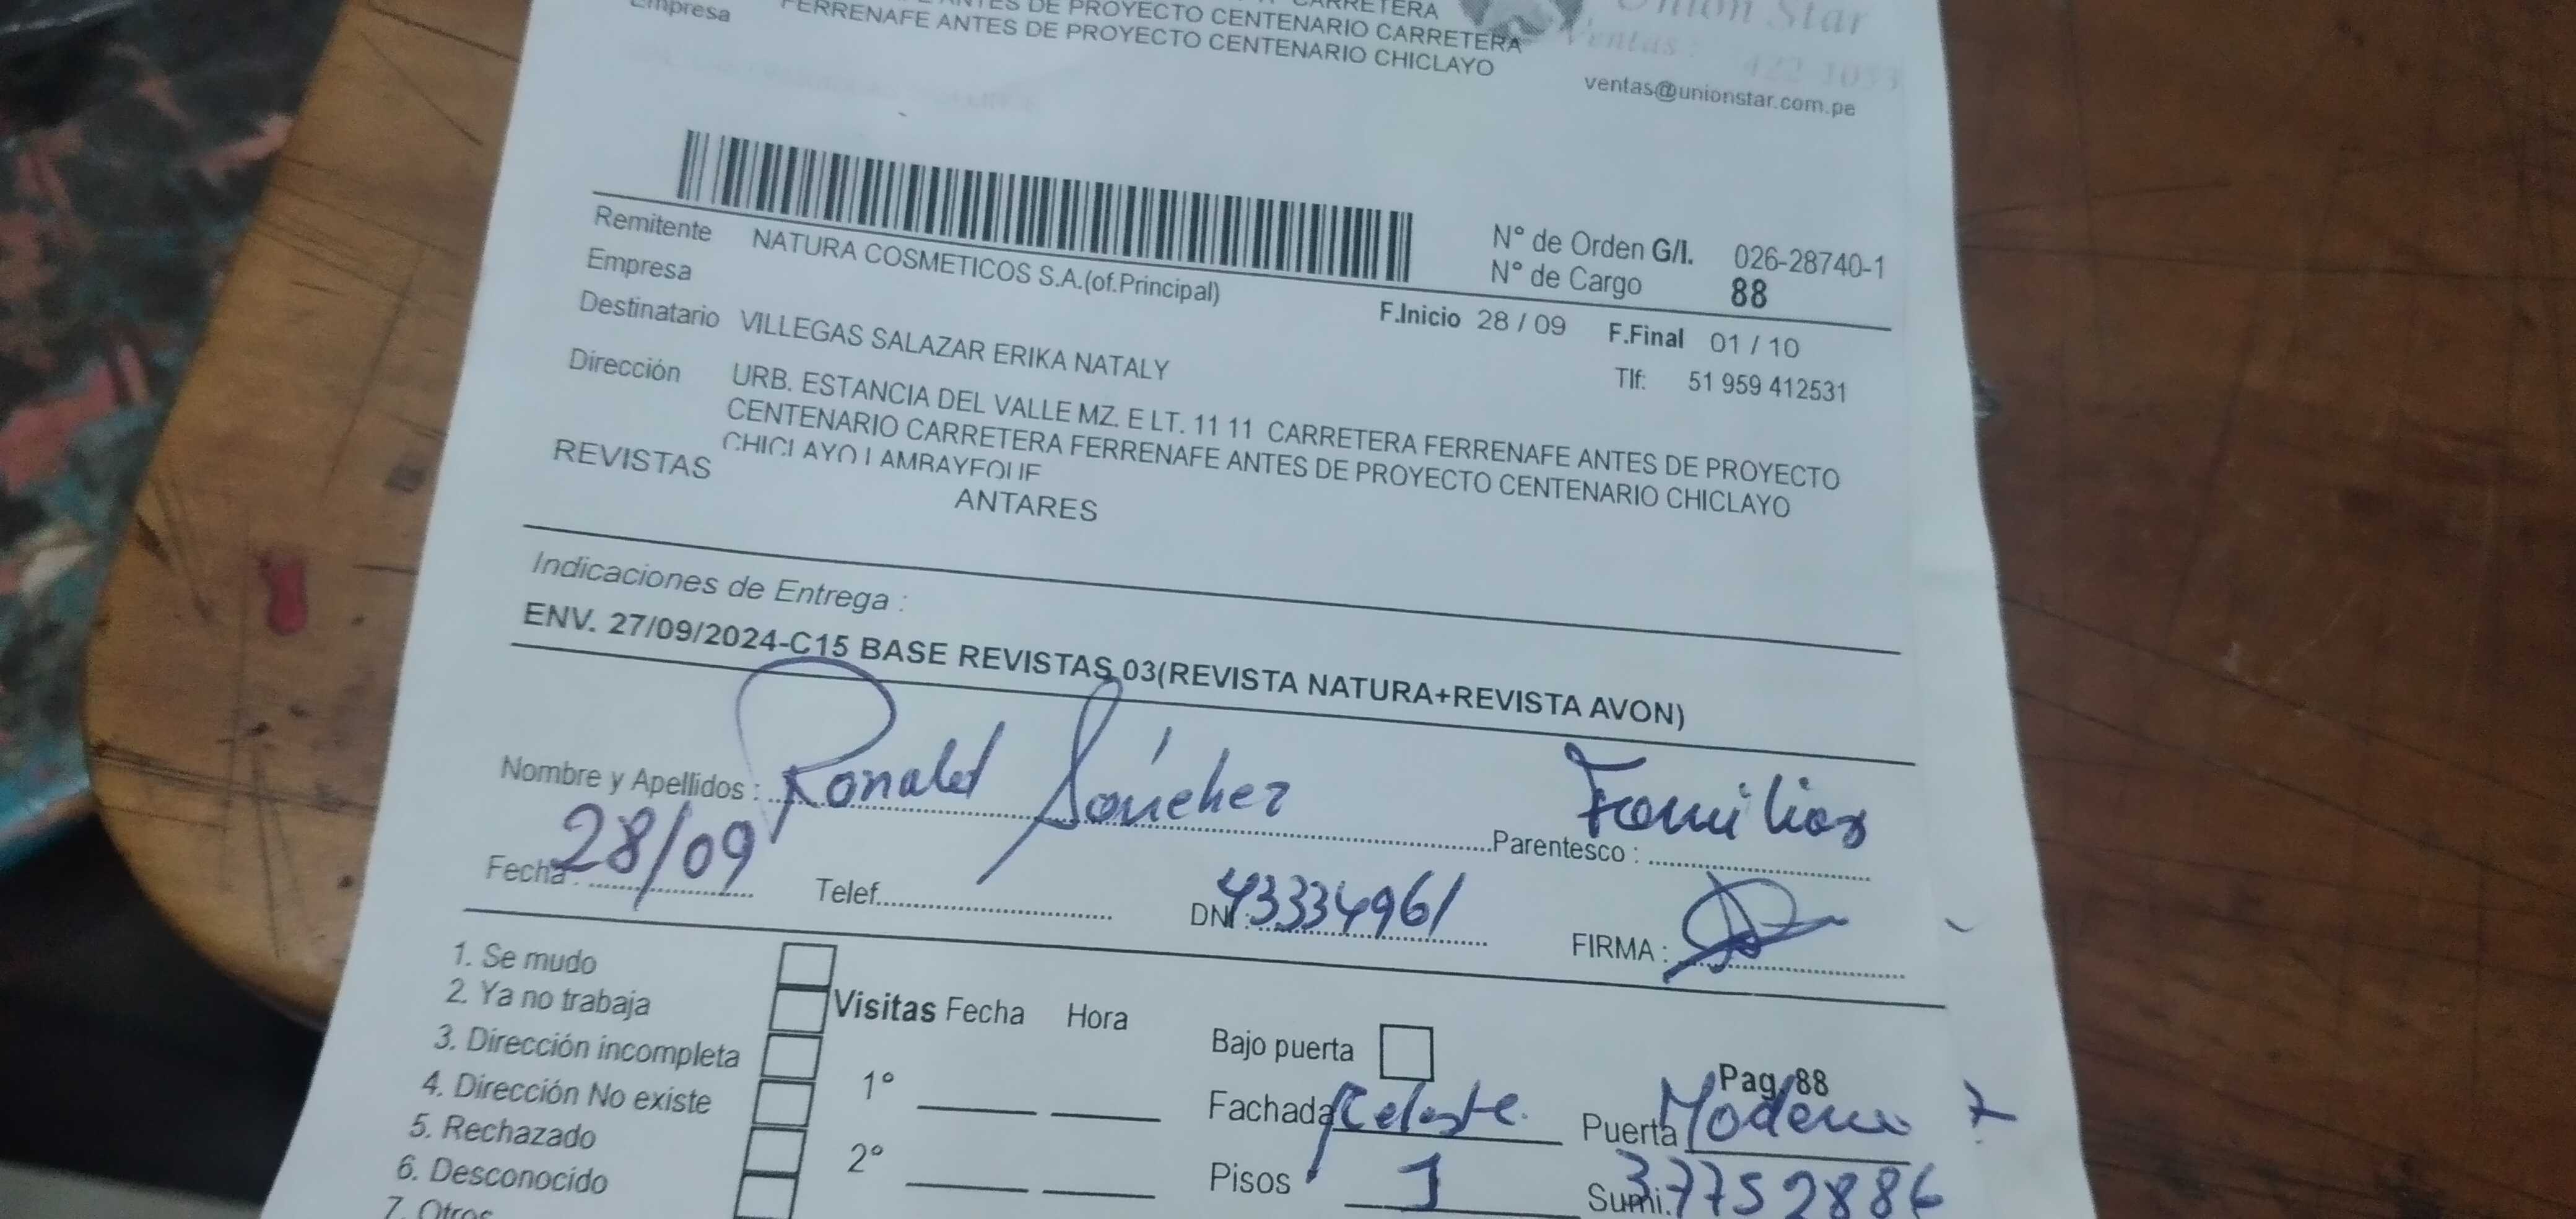 CARRETERA
ANTES DE PROYECTO CENTENARIO CARRETERA
Empresa FERRENAFE ANTES DE PROYECTO CENTENARIO CHICLAYO
Union Star
Ventas: 422-1053
ventas@unionstar.com.pe
Remitente NATURA COSMETICOS S.A.(of.Principal)
N° de Orden G/I. 026-28740-1
Empresa
N° de Cargo 88
Destinatario VILLEGAS SALAZAR ERIKA NATALY
F.Inicio 28 / 09 F.Final 01 / 10
Tlf: 51 959 412531
Dirección URB. ESTANCIA DEL VALLE MZ. E LT. 11 11 CARRETERA FERRENAFE ANTES DE PROYECTO
CENTENARIO CARRETERA FERRENAFE ANTES DE PROYECTO CENTENARIO CHICLAYO
CHICLAYO LAMBAYEQUE
REVISTAS
ANTARES
Indicaciones de Entrega :
ENV. 27/09/2024-C15 BASE REVISTAS 03(REVISTA NATURA+REVISTA AVON)
Nombre y Apellidos : Ronald Sánchez Parentesco : Familiar
Fecha : 28/09 Telef. DNI : 43334961 FIRMA :
1. Se mudo
2. Ya no trabaja
3. Dirección incompleta
4. Dirección No existe
5. Rechazado
6. Desconocido
7. Otros
Visitas Fecha Hora
1°
2°
Bajo puerta
Pag. 88
Fachada Celeste. Puerta
Pisos 1 Sumi. 37752886